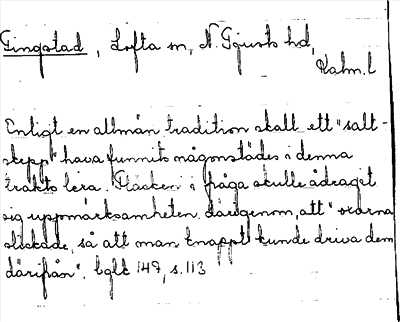 Gingstad, Lofta sn, N. Tjusts hd,
Kalm. l
Enligt en allmän tradition skall ett "salt-
skepp" hava funnits någonstädes i denna
trakts lera. Fläcken i fråga skulle ådragit
sig uppmärksamheten därigenom, att "oxarna
slickade, så att man knappt kunde driva dem
därifrån".
149, s. 113